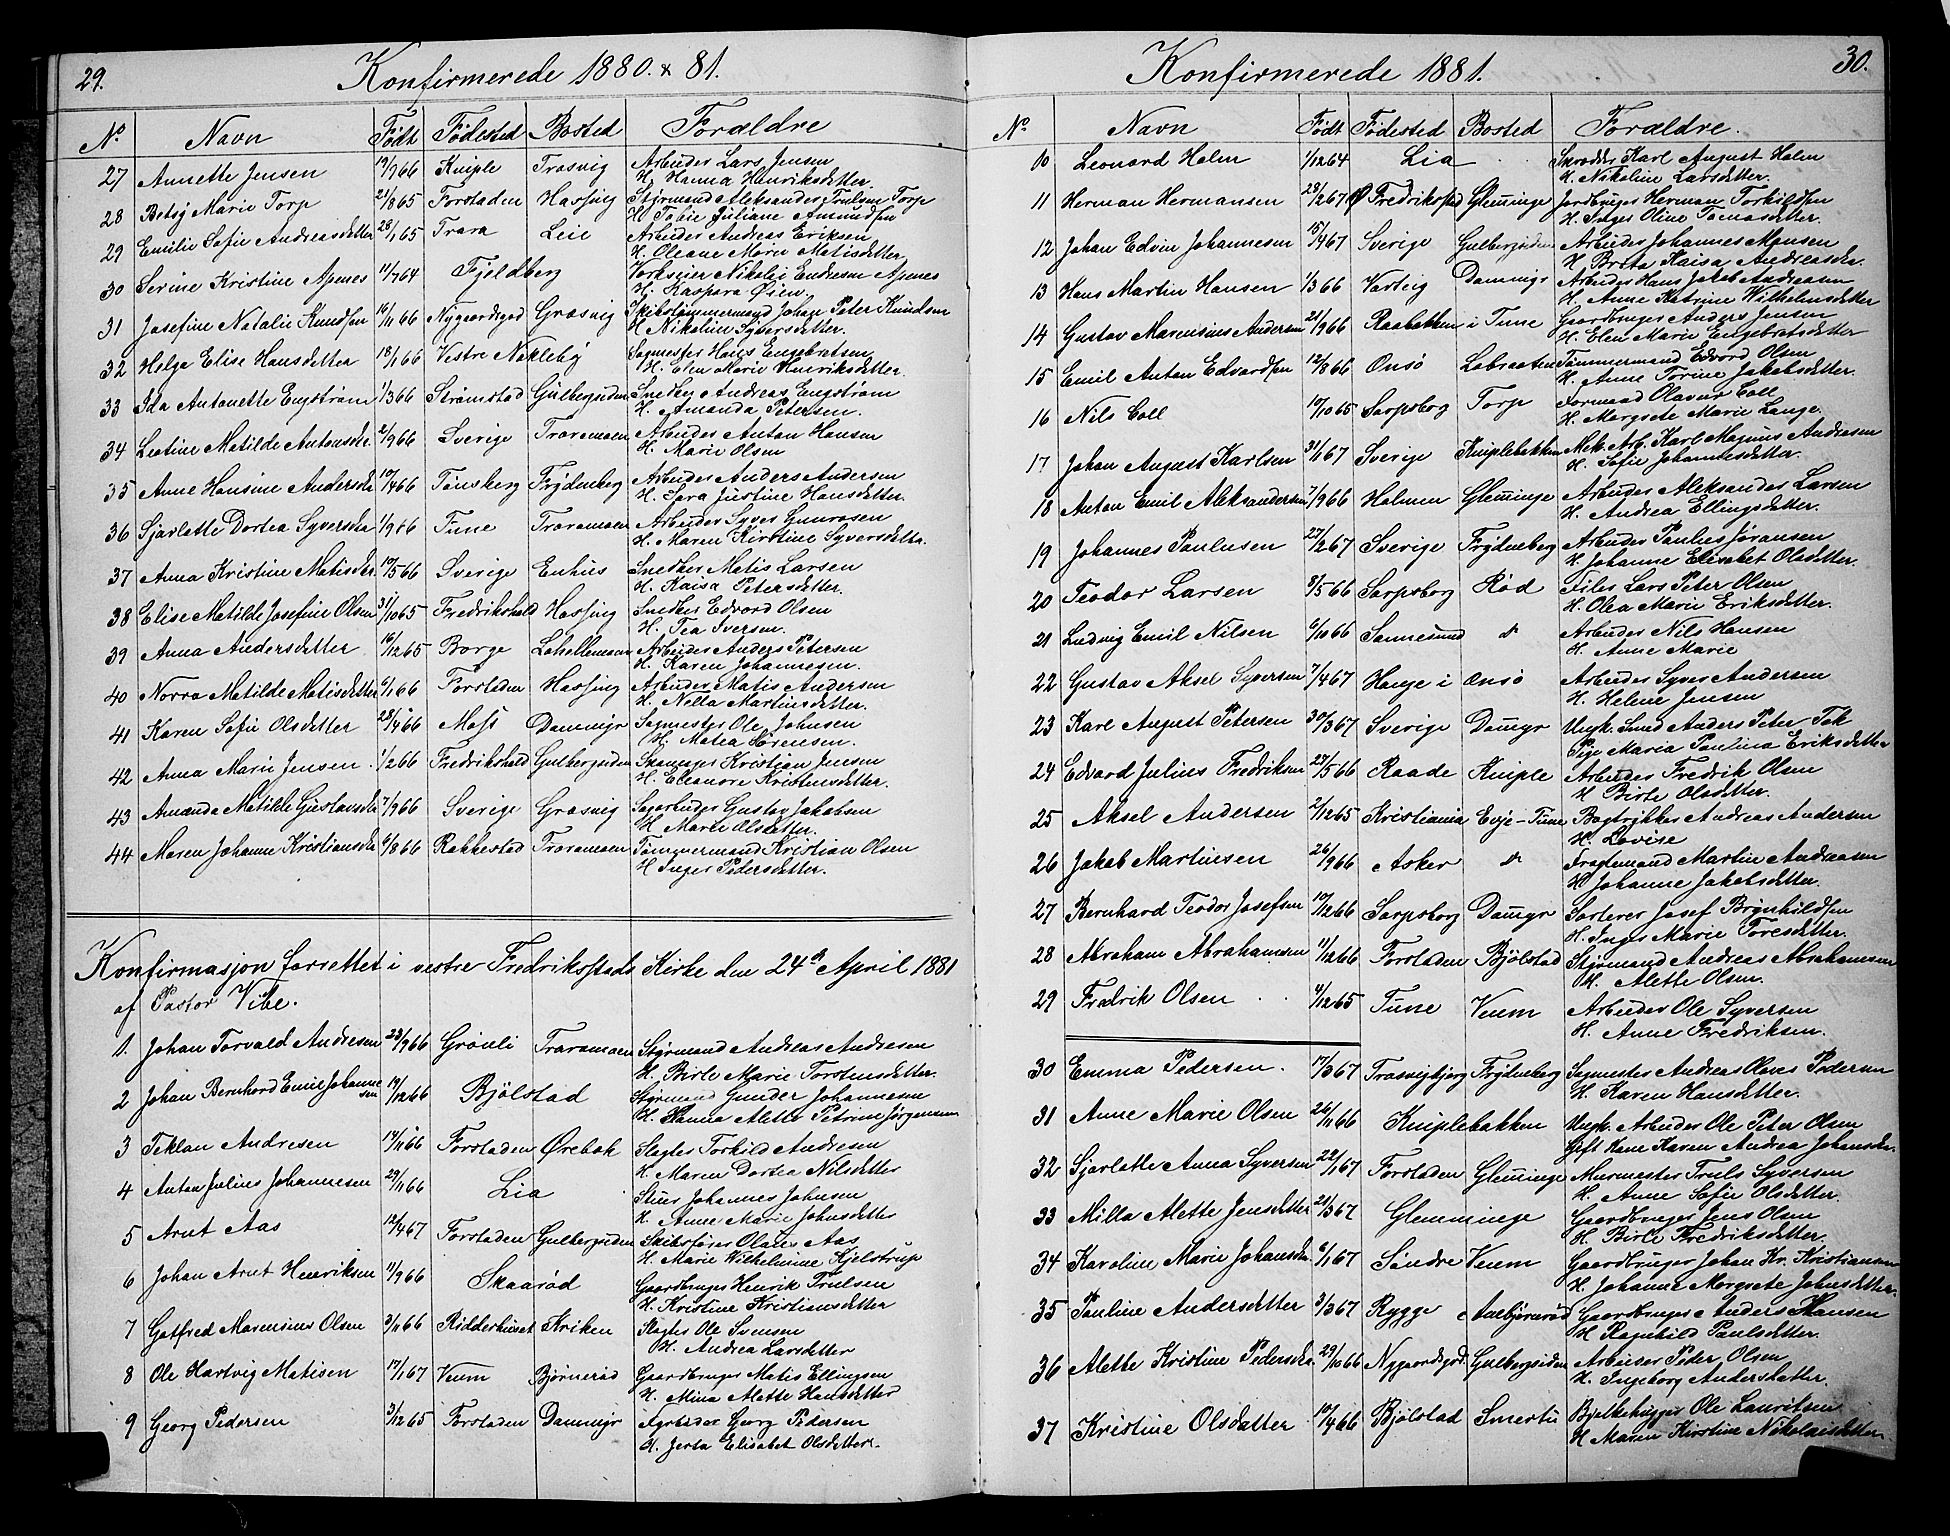 29.
Konfirmerede 1880. & 81.
No Navn Født Fødested Bosted Forældre
27 Annette Jensen 19/966 Kniple Trosvig Arbeider Lars Jensen
H. Hanna Henriksdatter.
28 Betsy Marie Torp 21/865 Forstaden Hassing Styrmand Aleksander Trulsen Torp
H. Tobie Juliane Amundsen
29 Emilie Sofie Andreasdatter 28/165 Trara Leie Arbeider Andreas Eriksen
H. Oleane Marie Matisdatter
30 Serine Kristine Apenes 11/764 Fjeldberg Verkseier Nikolei Endresen Apenes
H. Kaspara Øien.
31 Josefine Natalie Knudsen 16/1166 Nygaardsgd Græsvig Skibstømmermand Johan Peter Knudsen
H. Nikoline Syversdatter.
32 Helga Elise Hansdatter 18/166 Vestre Nøkleby Sagmester Hans Engebretsen
H. Elen Marie Henriksdatter.
33 Ida Antonette Engstrøm 1/366 Strømstad Gulbergsiden Snedker Andreas Engstrøm
H. Amanda Petersen.
34 Leatine Matilde Antonsdtr. 2/966 Sverige Traramoen Arbeider Anton Hansen
H. Marie Olsen
35 Anne Hansine Andersdtr 10/466 Tønsberg Frydenberg Arbeider Anders Andersen
H. Sara Justine Hansdatter.
36 Sjarlotte Dortea Syversdtr 1/966 Tune Traramoen Arbeider Syver Gunrøsen
H. Maren Kirstine Syversdatter.
37 Anna Kristine Matisdtr. 10/566 Sverige Enhus Snedker Matis Larsen
H. Kaisa Petersdatter.
38 Elise Matilde Josefine Olsen 31/1065 Fredrikshald Hassing Snedker Edvard Olsen
H. Tea Iversen.
39 Anna Andersdatter 16/1265 Borge Lahellemoen Arbeider Anders Petersen
H. Karen Johannesen.
40 Norra Matilde Matisdatter 6/166 Forstaden Hassing Arbeider Matis Andersen
H. Nella Martinsdatter.
41 Karen Sofie Olsdatter 28/466 Moss Dammyr Sagmester Ole Johnsen
H. Matea Sørensen.
42 Anna Marie Jensen. 1/266 Fredrikshald Gulbergsiden Skomager Kristian Jensen
H. Eleanore Kristensdatter.
43 Amanda Matilde Gustavsdtr 7/966 Sverige Græsvig Sagarbeider Gustav Jakobsen
H. Marie Olsdatter.
44 Maren Johanne Kristiansdtr 6/866 Rakkestad Traramoen Tømmermand Kristian Olsen
H. Inger Pedersdatter.
Konfirmasjon forrettet i vestre Fredriksstads Kirke den 24de April 1881
af Pastor Vibe.
1. Johan Torvald Andresen 23/966 Grønli Traramoen Styrmand Andreas Andresen
H. Birte Marie Torstensdatter.
2 Johan Bernhard Emil Johannesen 19/1266 Bjølstad Styrmand Gunder Johannesen
H. Hanna Alette Petrine Jørgensen
3 Teklan Andresen 14/1166 Forstaden Ørebak Slagter Torkild Andresen
H. Maren Dortea Nilsdatter
4 Anton Julius Johannesen 29/1166 Lia Stuer Johannes Johnsen
H. Anne Marie Johnsdatter
5 Arnt Aas 12/467 Forstaden Gulbergsiden Skibsfører Olaus Aas
H. Marie Wilhelmine Kjelstrup
6 Johan Arnt Henriksen 11/966 Skaarød Gaardbruger Henrik Trulsen
H. Kristine Kristiansdatter
7 Gotfred Marensius Olsen 3/1166 Ridderhuset Kriken Slagter Ole Svensen
H. Andrea Larsdatter
8 Ole Hartvig Matisen 17/167 Veum Bjørnerød Gaardbruger Matis Ellingsen
H. Mina Alette Hansdatter
9 Georg Pedersen 3/1265 Forstaden Dammyr Agerbeder Georg Pedersen
H. Jerta Elisabet Olsdatter.
30.
Konfirmerede 1881.
No. Navn Født Fødested Bosted Forældre.
10 Leonard Holm 1/1264 Lia Skrædder Karl August Holm
H. Nikoline Larsdatter.
11 Herman Hermansen 28/267 Ø Fredrikstad Glemminge Jordbruger Herman Torkildsen
H. Inger Oline Tomasdatter.
12 Johan Edvin Johannesen 15/467 Sverige Gulbergsiden Arbeider Johannes Monsen
H. Brita Kaisa Andreasdtr.
13 Hans Martin Hansen 1/366 Varteig Dammyr Arbeider Hans Jakob Andreasen
H. Anne Katrine Wilhelmsdatter
14 Gustav Marensius Andersen 21/966 Raabakken i Tune Gaardbruger Anders Jensen
H. Elen Marie Engebretsdatter
15 Emil Anton Edvardsen 12/866 Onsø Labraaten Tømmermand Edvard Olsen
H. Anne Torine Jakobsdatter.
16 Nils Coll 17/1065 Sarpsborg Torp Formand Olavus Coll
H. Margrete Marie Lange.
17 Johan August Karlsen 31/167 Sverige Kniplebakken Mek. Arb. Karl Magnus Andresen
H. Sofie Johannesdatter.
18 Anton Emil Aleksandersen 7/966 Holmen Glemminge Arbeider Aleksander Larsen
H. Andrea Ellingsdatter.
19 Johannes Paulusen 27/267 Sverige Frydenberg Arbeider Paulus Jøransen
H. Johanne Elisabet Olsdatter.
20 Teodor Larsen 8/566 Sarpsborg Rød Filer Lars Peter Olsen
H. Olea Marie Eriksdatter.
21 Ludvig Emil Nilsen 6/1066 Sannesund do Arbeider Nils Hansen
H. Anne Marie
22 Gustav Aksel Syversen 7/467 Hauge i Onsø Arbeider Syver Andersen
H. Helene Jensen
23 Karl August Petersen 30/367 Sverige Damyr Ungk. Smed Anders Peter Tok
Pige Maria Paulina Eriksdatter
24 Edvard Julius Fredriksen 29/566 Raade Kniple Arbeider Fredrik Olsen
H. Birte Olsdatter.
25 Aksel Andersen 2/1265 Kristiania Evje-Tune Bogtrykker Andreas Andersen
H. Lovise
26 Jakob Martinsen 26/966 Asker do Fragtemand Martin Andreasen
H. Johanne Jakobsdatter.
27 Bernhard Teodor Josefsen 10/1266 Sarpsborg Damyr Sorterer Josef Brynhildsen
H. Inger Marie Toresdatter.
28 Abraham Abrahamsen 11/1266 Forstaden Bjølstad Styrmand Andreas Abrahamsen
H. Alette Olsen.
29 Fredrik Olsen 4/1265 Tune Veum Arbeider Ole Syversen
H. Anne Fredriksen.
30 Emma Pedersen. 17/367 Trosvigbjerg Frydenberg Sagmester Andreas Olaves Pedersen
H. Karen Hansdatter.
31 Anne Marie Olsen 26/1166 Kniplebakken Ungk. Arbeider Ole Peter Olsen
Gift Kone Karen Andrea Johansdtr.
32 Sjarlotte Anna Syversen 22/167 Forstaden Glemminge Murmester Truls Syversen
H. Anne Sofie Olsdatter.
33 Milla Alette Jensdatter 21/367 Glemminge Gaardbruger Jens Olsen
H. Birte Fredriksdatter.
34 Karoline Marie Johansdtr. 6/167 Søndre Veum Gaardbruger Johan Kr. Kristiansen
H. Johanne Margrete Johnsdatter.
35 Pauline Andersdatter 3/367 Rygge Aabjørnrød Gaardbruger Anders Hansen
H. Ragnhild Paulsdatter.
36 Alette Kristine Pedersdtr. 29/1066 Nygaardsgd. Gulbergsiden Arbeider Peder Olsen
H. Ingeborg Andersdatter.
37 Kristine Olsdatter 10/466 Bjølstad Smertu Bjelkehugger Ole Lauritsen
H. Maren Kirstine Nikolaisdatter